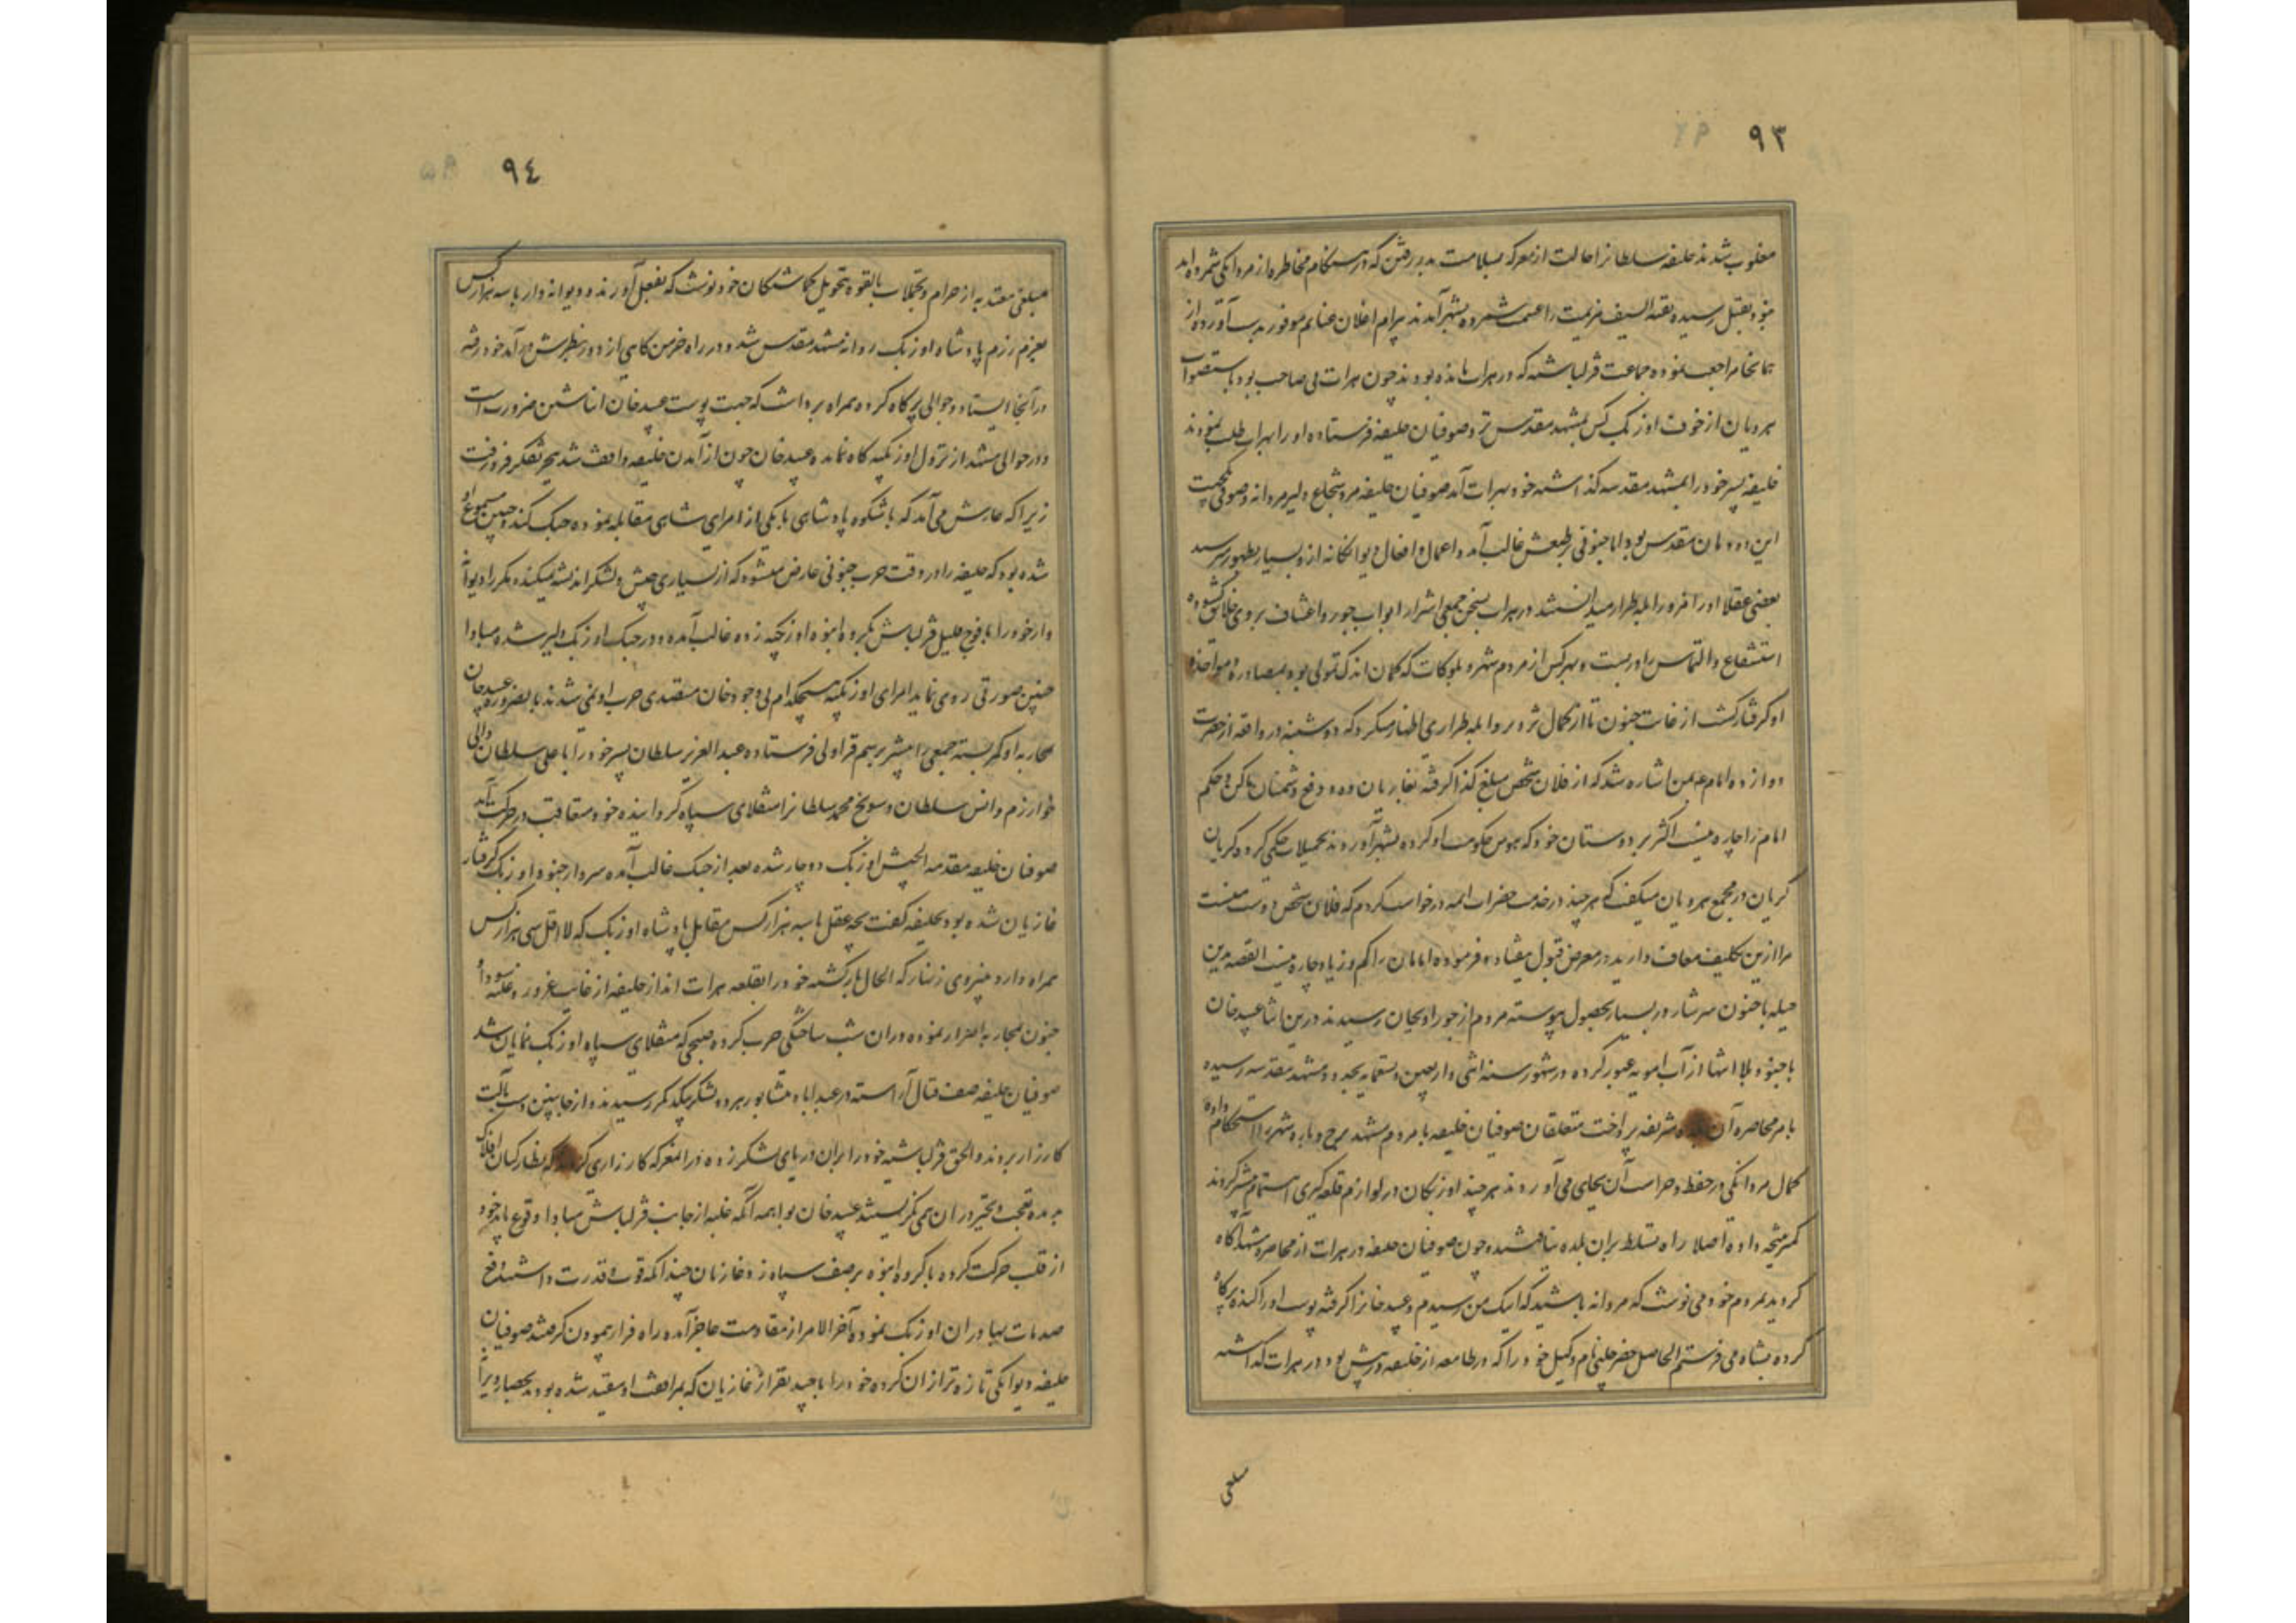 ٩٣
مغلوب شدند خلیفه سلطان را حالت از معرکه بسلامت بدر رفتن که در هنگام مخاطره از مردانگی شمرده اند
نبود بقتل رسیده بقیه السیف هزیمت را غنیمت شمرده بشهر آمدند بیرام اغلان غنایم موفور بدست آورده از
همانجا مراجعت نموده جماعت قزلباشیه که در هرات مانده بودند چون هرات بی صاحب بود باستصواب
هرویان از خوف اوزبک کس بمشهد مقدس نزد صوفیان خلیفه فرستاده او را بهرات طلب نمودند
خلیفه پسر خود را بمشهد مقدسه گذاشته خود بهرات آمد صوفیان خلیفه مرد شجاع دلیر مردانه و صوفی یکجهت
این دودمان مقدس بود اما جنونی بر طبعش غالب آمده اعمال و افعال دیوانگانه ازو بسیار بظهور میرسید
بعضی عقلا او را مزور ابله طرار میدانستند در هرات بسخن جمعی اشرار ابواب جور و اعتساف بر روی خلایق گشوده
استشفاع و التماس را در بست و هر کس از مردم شهر و بلوکات که گمان اندک تمولی بود بمصادره و مواخذه
او گرفتار گشت از غایت جنون تا از کمال تزویر و ابله طراری اظهار میکرد که دوشینه در واقعه از حضرت
دوازده امام ع بمن اشاره شد که از فلان شخص مبلغ کذا گرفته بغازیان ده و دفع دشمنان ما کن و حکم
امام را چاره نیست اکثر بر دوستان خود که هوس حکومت او کرده بشهر آوردند تحمیلات حکمی کرد و گریان
گریان در مجمع هرویان میگفت که هر چند در خدمت حضرات ائمه درخواست کردم که فلان شخص دوست منست
مرا ازین تکلیف معاف دارید در معرض قبول نیفتاده فرموده امامان را کم و زیاد چاره نیست القصه بدین
حیله با جنون سرشار زر بسیار بحصول پیوسته مردم از جور او بجان رسیدند درین اثنا عبید خان
با جنود بلا انتها از آب امویه عبور کرده در شهور سنه اثنی و اربعین و تسعمایه بحدود مشهد مقدسه رسیده
بامر محاصره آن بلده شریفه پرداخت متعلقان صوفیان خلیفه با مردم مشهد برج و باره شهر را استحکام داده
کمال مردانگی در حفظ و حراست آن بجای می آوردند هر چند اوزبکان در لوازم قلعه گیری اهتمام بیشتر کردند
کمتر نتیجه داده اصلا راه تسلط بران بلده نیافتند و چون صوفیان خلیفه در هرات از محاصره مشهد آگاه
گردید بمردم خود می نوشت که مردانه باشید که اینک من رسیدم و عبید خانرا گرفته پوست او را کنده پر کاه
کرده بشاه می فرستم الحاصل خضر چلبی نام وکیل خود را که در طامعه از خلیفه در پیش بود در هرات گذاشته
مبلغی
٩٤
مبلغی معتد به از حرام و تحملات بالقوه تحویل گماشتگان خود نوشت که بفعل آورند و دیوانه وار با سه هزار کس
بعزم رزم پادشاه اوزبک روانه مشهد مقدس شد و در راه خرمن کاهی از دور بنظرش در آمد خود رفته
در آنجا ایستاد و جوالی پر کاه کرده همراه برداشت که جهت پوست عبید خان انباشتن ضرور است
و در حوالی مشهد از نزول اوزبکیه کاه نمانده عبید خان چون از آمدن خلیفه واقف شد ببحر تفکر فرو رفت
زیرا که عارش می آمد که با شکوه پادشاهی با یکی از امرای شاهی مقابله نموده جنک کند و چنین مسموع او
شده بود که خلیفه را در وقت حرب جنونی عارض میشود که از بسیاری جیش و لشکر اندیشه نمیکند مکرر دیوانه
وار خود را با فوج قلیل قزلباش بگروه انبوه اوزبکیه زده غالب آمده و در جنک اوزبک دلیر شده مبادا
چنین صورتی روی نماید امرای اوزبکیه هیچکدام بی وجود خان متصدی حرب او نمی شدند بالضروره عبید خان
بمحاربه او کمر بسته جمعی را پیشتر برسم قراولی فرستاده عبد العزیز سلطان پسر خود را با علی سلطان والی
خوارزم و انس سلطان و سونج محمد سلطان را منقلای سپاه گردانیده خود متعاقب در حرکت آمد
صوفیان خلیفه مقدمه الجیش اوزبک دوچار شده بعد از جنک غالب آمده سردار جنود اوزبک گرفتار
غازیان شده بود بخلیفه گفت بچه عقل با سه هزار کس مقابل پادشاه اوزبک که لا اقل سی هزار کس
همراه دارد میروی زنهار که الحال بازگشته خود را بقلعه هرات انداز خلیفه از غایت غرور و غلبه سودا و
جنون بمحاربه اصرار نموده دران شب ساختگی حرب کرده صبحی که منقلای سپاه اوزبک نمایان شد
صوفیان خلیفه صف قتال آراسته در عبداباد نشابور هر دو لشکر بیکدیگر رسیدند و از جانبین دست بآلت
کارزار بردند و الحق قزلباشیه خود را بران دریای لشکر زده در المعرکه کارزاری کردند که نظارکیان افلاک
بدیده تعجب و تحیر دران می نگریستند عبید خان بواهمه آنکه غلبه از جانب قزلباش مبادا وقوع یابد خود
از قلب حرکت کرده با گروه انبوه بر صف سپاه زد غازیان چندانکه قوت و قدرت داشتند دفع
صدمات بهادران اوزبک نموده آخر الامر از مقاومت عاجز آمده راه فرار پیمودن گرفتند صوفیان
خلیفه دیوانگی تازه تر ازان کرده خود را با چند نفر از غازیان که بمرافقت او مقید شده بودند بحصار ویرانه